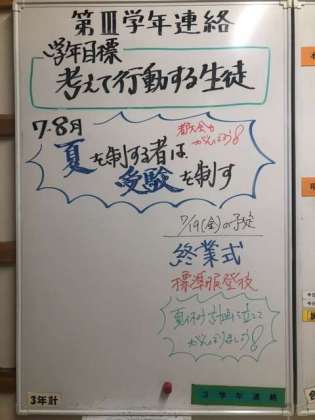 第Ⅲ学年連絡
学年目標
考えて行動する生徒
7・8月
都大会も
がんばろう8
夏を制する者は
受験を制す
7/19(金)の予定
終業式
標準服登校
夏休み計画を立てて
がんばりましょう8
3年計
3学年連絡